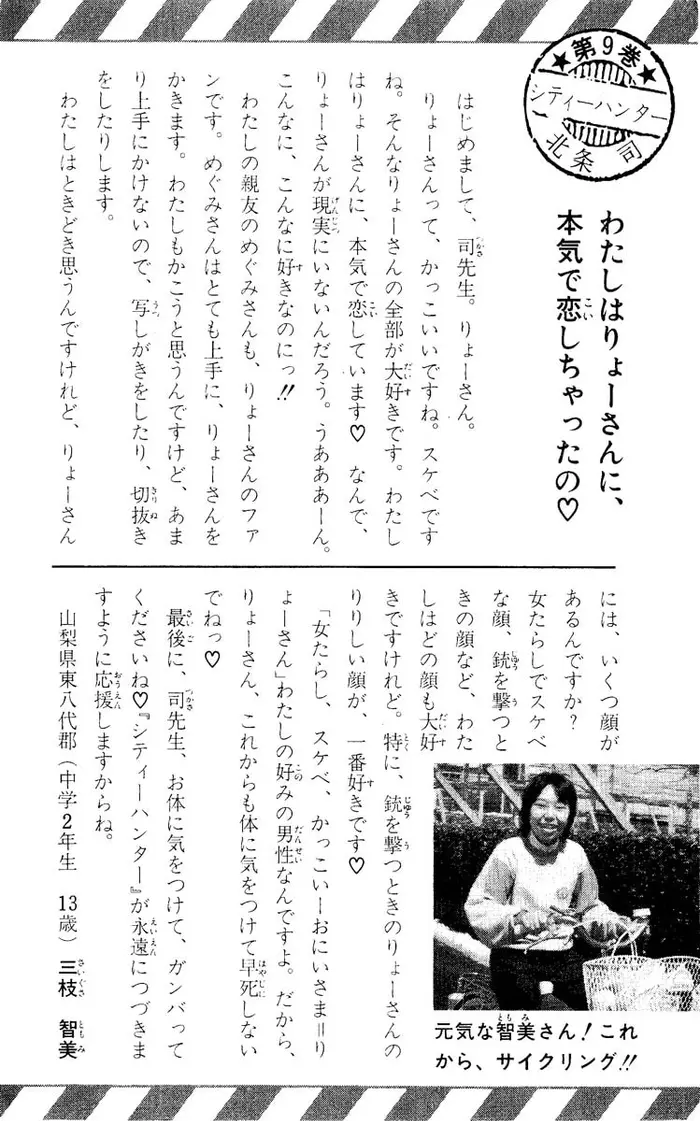 ★第9巻★
シティーハンター
北条 司
わたしはりょーさんに、
本気で恋しちゃったの♡
はじめまして、司先生。りょーさん。
りょーさんって、かっこいいですね。スケベです
ね。そんなりょーさんの全部が大好きです。わたし
はりょーさんに、本気で恋しています♡ なんで、
りょーさんが現実にいないんだろう。うあああーん。
こんなに、こんなに好きなのにっ!!
わたしの親友のめぐみさんも、りょーさんのファ
ンです。めぐみさんはとても上手に、りょーさんを
かきます。わたしもかこうと思うんですけど、あま
り上手にかけないので、写しがきをしたり、切抜き
をしたりします。
わたしはときどき思うんですけれど、りょーさん
には、いくつ顔が
あるんですか?
女たらしでスケベ
な顔、銃を撃つと
きの顔など、わた
しはどの顔も大好
きですけれど。特に、銃を撃つときのりょーさんの
りりしい顔が、一番好きです♡
「女たらし、スケベ、かっこいーおにいさま=り
ょーさん」わたしの好みの男性なんですよ。だから、
りょーさん、これからも体に気をつけて早死しない
でねっ♡
最後に、司先生、お体に気をつけて、ガンバって
くださいね♡『シティーハンター』が永遠につづきま
すように応援しますからね。
山梨県東八代郡(中学2年生 13歳) 三枝 智美
元気な智美さん!これ
から、サイクリング!!